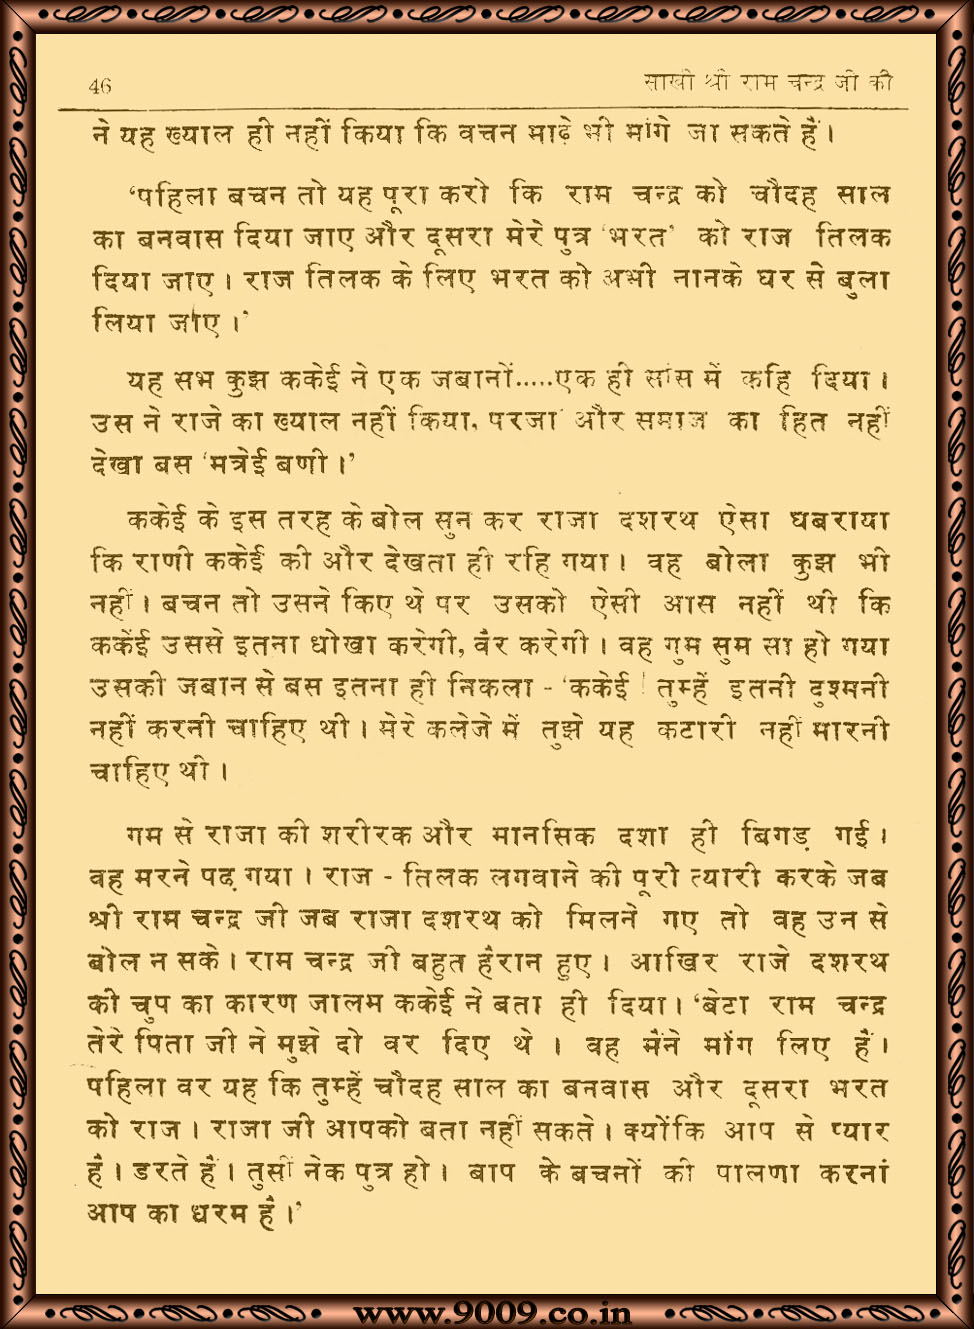 46
साखी श्री राम चन्द्र जी की
ने यह ख्याल ही नहीं किया कि वचन माढ़े भी मांगे जा सकते हैं।
‘पहिला बचन तो यह पूरा करो कि राम चन्द्र को चौदह साल
का बनवास दिया जाए और दूसरा मेरे पुत्र ‘भरत’ को राज तिलक
दिया जाए। राज तिलक के लिए भरत को अभी नानके घर से बुला
लिया जाए।’
यह सभ कुझ ककेई ने एक जबानों.....एक ही सांस में कहि दिया।
उस ने राजे का ख्याल नहीं किया, परजा और समाज का हित नहीं
देखा बस ‘मत्रेई बणी।’
ककेई के इस तरह के बोल सुन कर राजा दशरथ ऐसा घबराया
कि राणी ककेई की और देखता ही रहि गया। वह बोला कुझ भी
नहीं। बचन तो उसने किए थे पर उसको ऐसी आस नहीं थी कि
ककेंई उससे इतना धोखा करेगी, वैर करेगी। वह गुम सुम सा हो गया
उसकी जबान से बस इतना ही निकला - ‘ककेई ! तुम्हें इतनी दुश्मनी
नहीं करनी चाहिए थी। मेरे कलेजे में तुझे यह कटारी नहीं मारनी
चाहिए थी।
गम से राजा की शरीरक और मानसिक दशा ही बिगड़ गई।
वह मरने पढ़ गया। राज - तिलक लगवाने की पूरी त्यारी करके जब
श्री राम चन्द्र जी जब राजा दशरथ को मिलने गए तो वह उन से
बोल न सके। राम चन्द्र जी बहुत हैरान हुए। आखिर राजे दशरथ
की चुप का कारण जालम ककेई ने बता ही दिया। ‘बेटा राम चन्द्र
तेरे पिता जी ने मुझे दो वर दिए थे । वह मैंने मांग लिए हैं।
पहिला वर यह कि तुम्हें चौदह साल का बनवास और दूसरा भरत
को राज। राजा जी आपको बता नहीं सकते। क्योंकि आप से प्यार
है। डरते हैं। तुसीं नेक पुत्र हो। बाप के बचनों की पालणा करनां
आप का धरम है।’
www.9009.co.in